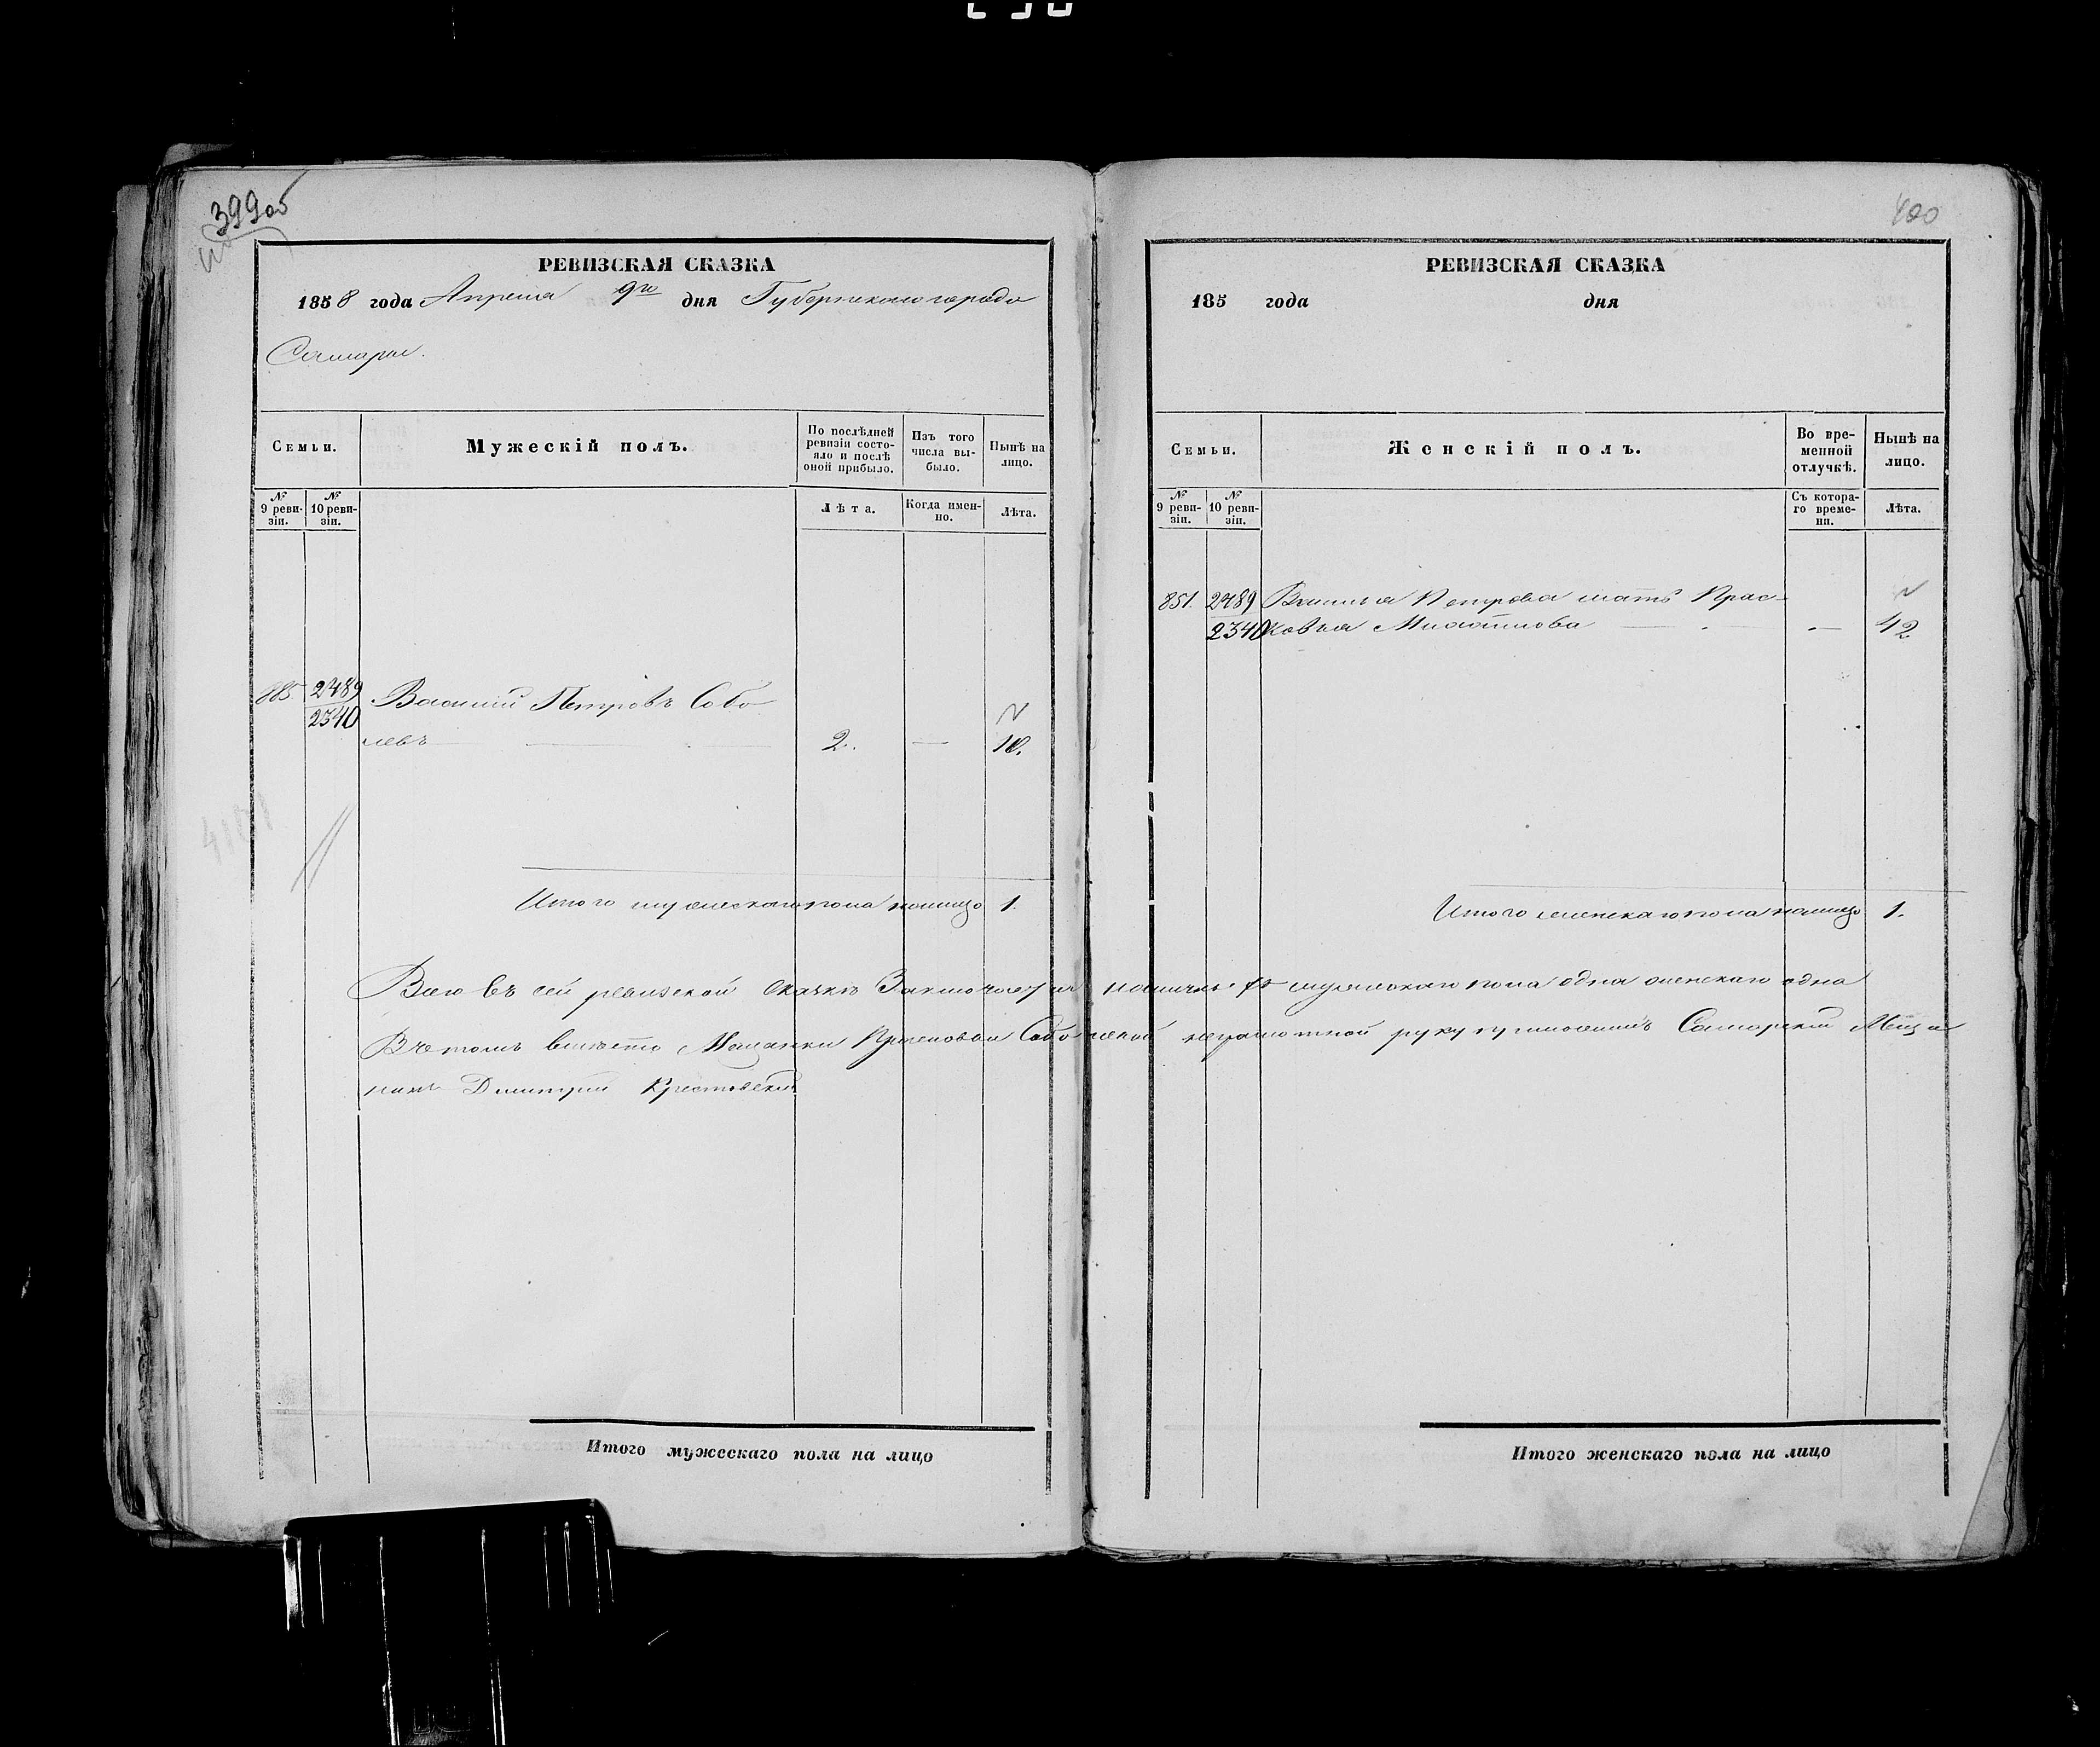 399об
РЕВИЗСКАЯ СКАЗКА
1858 года Апреля 9го дня Губернскаго города
Самары.
Семьи.
Мужескій полъ.
По послѣдней ревизіи состояло и послѣ оной прибыло.
Изъ того числа выбыло.
Нынѣ на лицо.
№ 9 ревизіи.
№ 10 ревизіи.
Лѣта.
Когда именно.
Лѣта.
2489 Василий Петровъ Собо
2340
левъ 2. — 10.
Итого мужескаго пола налицо 1.
Всего въ сей ревизской сказкѣ Заключается
В чемъ вместо Мещанки Прасковьи Собо
никъ Дмитрий Крестовский
Итого мужескаго пола на лицо
400
РЕВИЗСКАЯ СКАЗКА
185 года дня
Семьи.
Женскій полъ.
Во временной отлучкѣ.
Нынѣ на лицо.
№ 9 ревизіи.
№ 10 ревизіи.
Съ котораго времени.
Лѣта.
851. 2489 Василья Петрова мать Прас-
2340 ковья Михайлова — 42
Итого женскаго пола налицо 1.
мужескаго пола одна женскаго одна
левой неграмотной руку приложилъ Самарский Меща
Итого женскаго пола на лицо